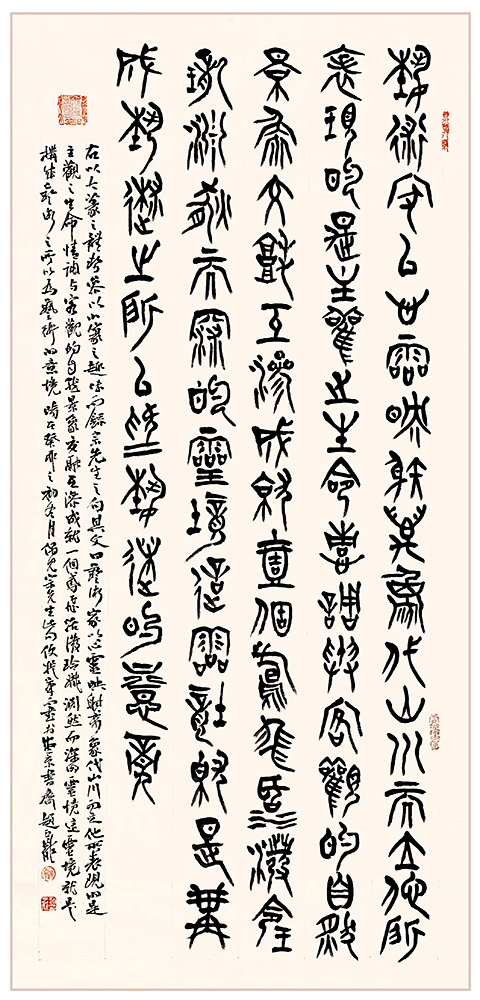 藝術家以心靈映射萬象代山川而立他所
表現的是主觀之生命情調與客觀的自然
景象交融互滲成就壹個鳶飛活潑玲
瓏淵然而深的靈境這靈境就是構
成藝術之所以為藝術的意境
右以大篆之體勢參以小篆之趣味而錄宗先生之句其文曰藝術家以心靈映射萬象代山川而立他所表現的是
主觀之生命情調與客觀的自然景象交融互滲成就一個鳶飛活潑玲瓏淵然而深的靈境這靈境就是
構成藝術之所以為藝術的意境時在癸卯之初冬月宗先生於北京書齋